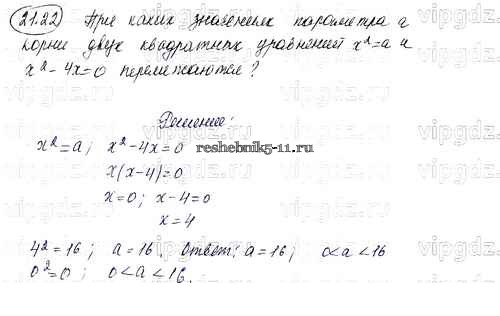 21.22 При каких значениях параметра a
корни двух квадратных уравнений x²=a и
x²-4x=0 перемежаются?
Решение:
x²=a; x²-4x=0
x(x-4)=0
x=0; x-4=0
x=4
4²=16; a=16. Ответ: a=16; 0<a<16
0²=0; 0<a<16.
reshebnik5-11.ru
vipgdz.ru